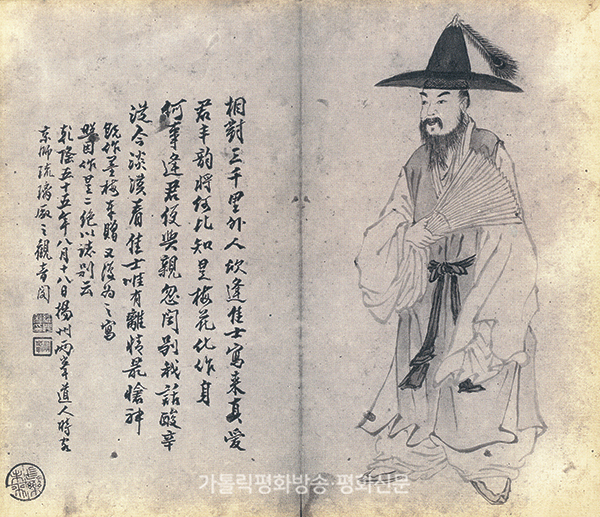 相對三千里外人欣逢佳士寫來真愛
君丰韻將何比知是梅花化作身
何事逢君便與親忽聞別我話酸辛
從今淡漠看佳士唯有離情最愴神
既作墨梅奉贈又復為之寫
照因作是二絕以誌別云
乾隆五十五年八月十八日揚州兩峯道人時客
京師琉璃廠之觀音閣
가톨릭평화방송·평화신문